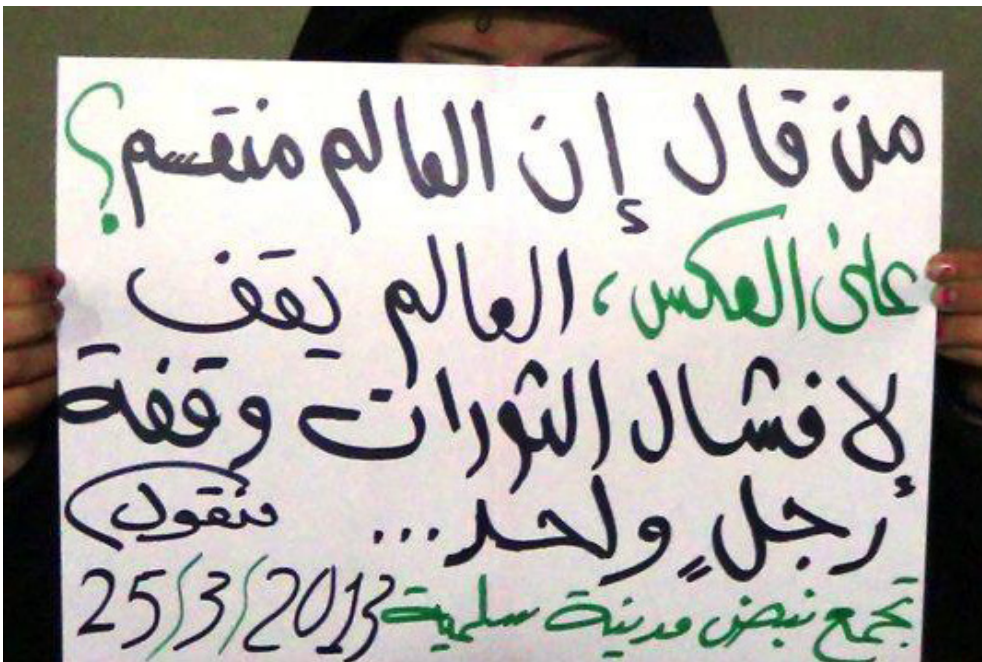 من قال إن العالم منقسم؟
على العكس، العالم يقف
لإفشال الثورات وقفة
رجلٍ واحد... منقول
تجمع نبض مدينة سلمية 25/3/2013